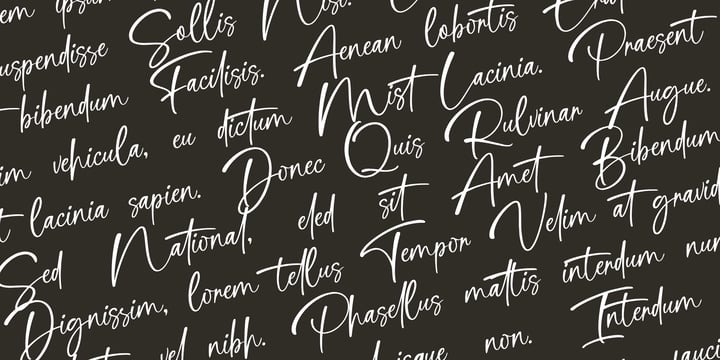 em ipsum
uspendisse Sollis Nisi.
bibendum Facilisis. Aenean lobortis Erat
im vehicula, eu dictum Mist Lacinia. Praesent
t lacinia sapien. Donec Quis Rulvinar Augue.
Sed National, eled sit Amet Bibendum
Dignissim, lorem tellus Tempor Velim at gravid
vel nibh. Phasellus mattis interdum nun
isque non. Interdum